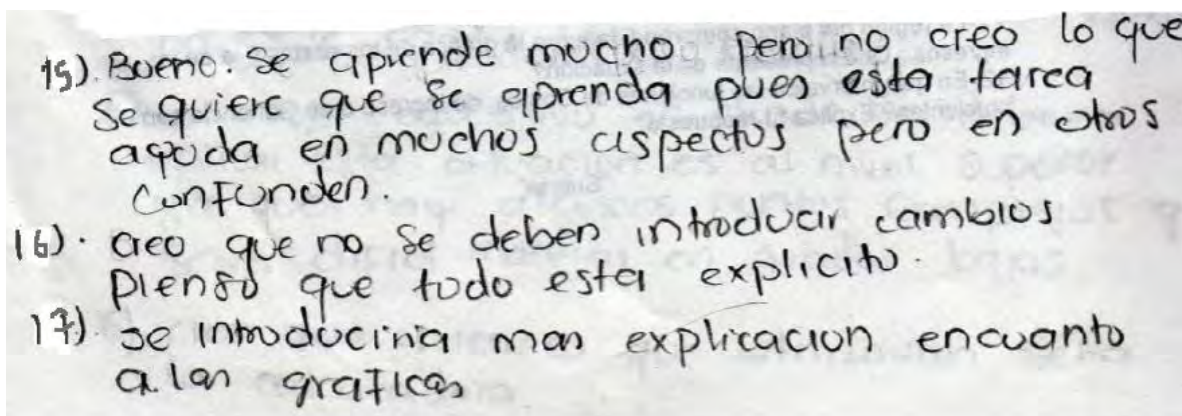 15). Bueno. Se aprende mucho, pero no creo lo que
se quiere que se aprenda pues esta tarea
aquda en muchos aspectos pero en otros
confunden.
16). creo que no se deben introducir cambios
pienso que todo esta explicito.
17). se introduciria mas explicacion encuanto
a las graficas